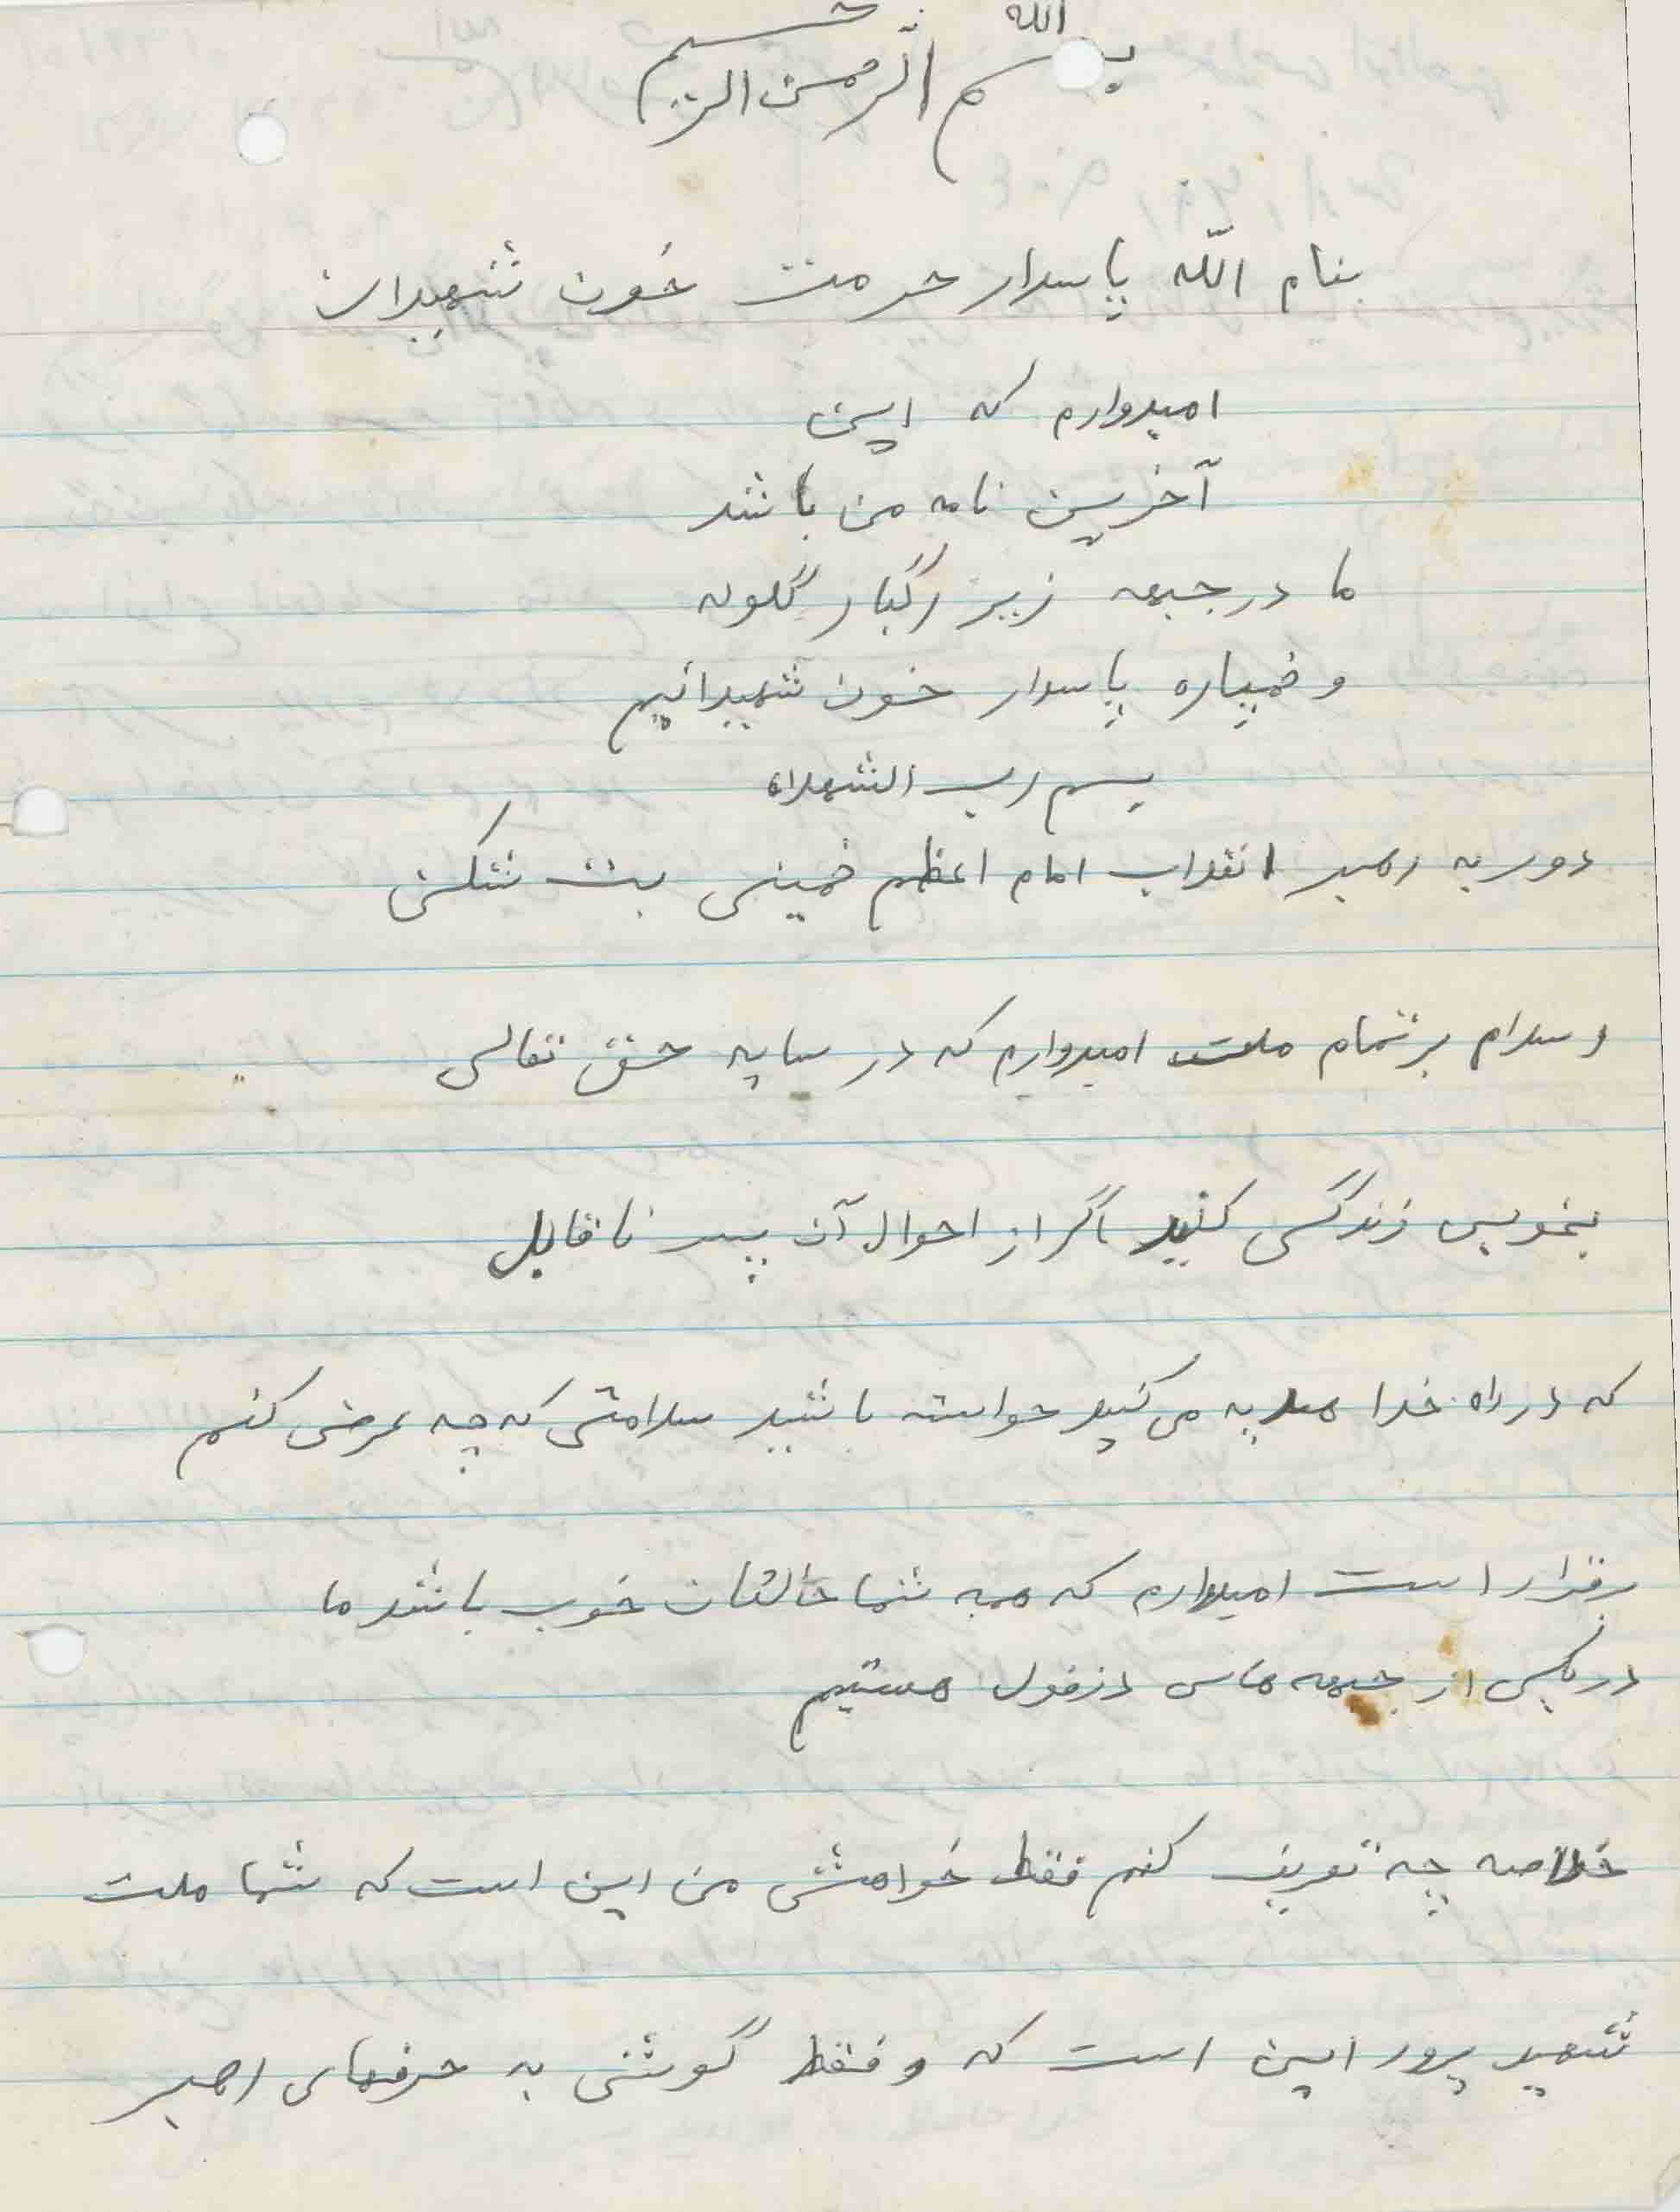 بسم الله الرحمن الرحیم
بنام اللّه پاسدار حرمت خون شهیدان
امیدوارم که این
آخرین نامه من باشد
ما در جبهه زیر رگبار گلوله
و خمپاره پاسدار خون شهیدانیم
بسم رب الشهداء
درو به رهبر انقلاب امام اعظم خمینی بت شکن
و سلام بر تمام ملت امیدوارم که در سایه حق تعالی
بخوبی زندگی کنید اگر از احوال آن پسر ناقابل
که در راه خدا هدیه می کنید خواسته باشید سلامتی که چه عرض کنم
برقرار است امیدوارم که همه شما حالتان خوب باشد ما
در یکی از جبهه های دزفول هستیم
خلاصه چه تعریف کنم فقط خواهش من این است که شما ملت
شهید پرور این است که و فقط گوش به حرفهای رهبر